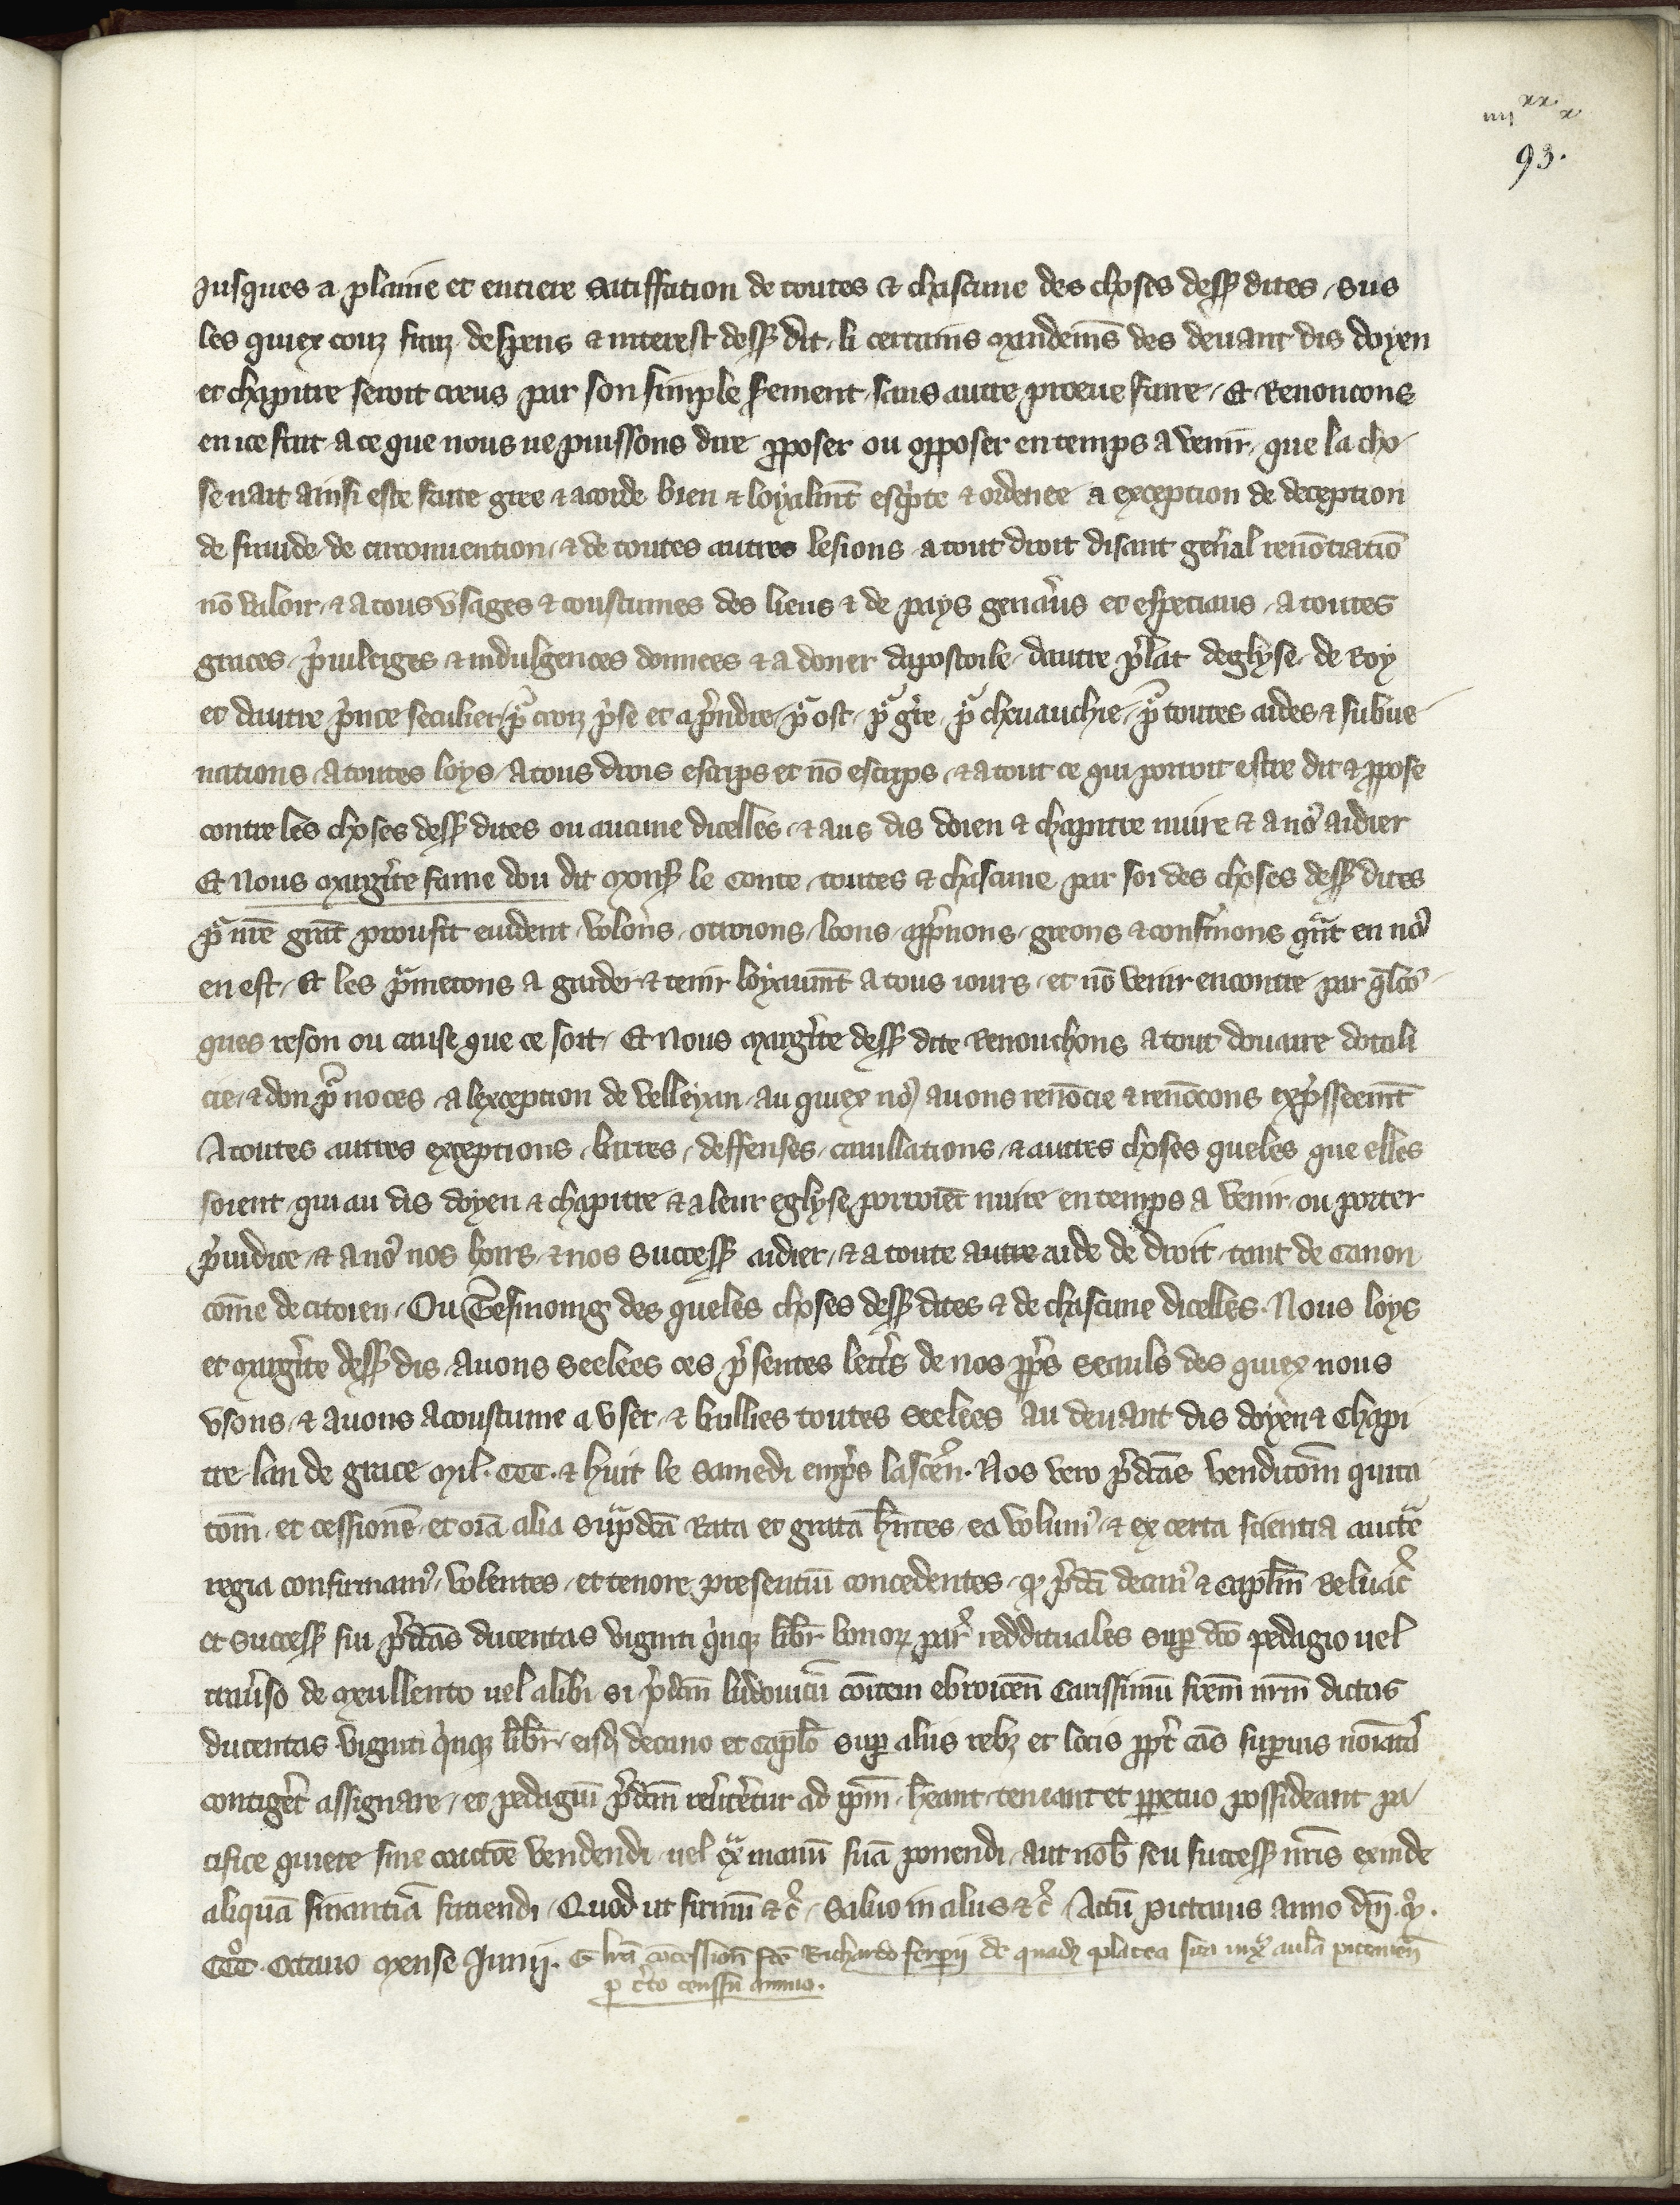 iiijxx x
93.
Jusques a plaine et entiere satiffation de toutes & chascune des choses dess dites, sus
les quiex couz fraiz despens & interest dess dit, li certains mandemēs des devant dis doyen
et chapitre seroit creus par son simple serement, sans autre proeve faire, Et Renoncons
en ice fait a ce que nous ne puissons dire pposer ou opposer en temps a venir, que la cho
se nait ainsi este faite gree & acorde bien & loyalmēt escpte & ordenee a exception de deception
de fraude de circonuention, & de toutes autres lesions a tout droit disant genal renōtiatiō
nō valoir, & a tous vsages & coustumes des lieus & de pays genaus et especiaus, a toutes
graces, priuileiges & indulgences donnees & a doner dapostoile, dautre plat deglyse, de Roy
et dautre pince seculier, p croiz pse et apndre, p ost, p gre, p cheuauchie, p toutes aides & subue
nations, a toutes loys, a tous drois escrips et nō escrips, & a tout ce qui porroit estre dit & ppose
contre les choses dess dites ou aucune dicelles, & aus dis doien & chapitre nuire & a no9 aidier
Et Nous Margite fame dou dit Mons le Conte, toutes & chascune par soi des choses dess dites
p nre grāt proufit euident, volons, otroions, loons, appuons, greons & confmons qat en no9
en est, Et les pmetons a garder & tenir loyaumēt a tous iours, et nō venir encontre par qlco
ques reson ou cause que ce soit, Et Nous Margite dess dite Renonchons a tout douaire dotali
cie, & don p noces a lexception de velleyan, au quiex no9 auons renōcie & renōcons expsseemēt
A toutes autres exceptions, barres, deffenses, cauillations, & autres choses queles que elles
soient, qui au dis doyen & chapitre & a leur eglyse porroiēt nuire en temps a venir, ou porter
piudice, & a no9 nos hoirs & nos success aidier, & a toute autre aide de droit, tant de Canon
cōme de citoien, Ou Tesmoing des queles choses dess dites & de chascune dicelles, Nous loys
et Margite dess dis, auons seelees ces psentes lettes de nos pps seauls des quiex nous
vsons, & auons acoustume a vser, & baillies toutes seelees au deuant dis doyen & Chapi
tre, lan de grace Mil. CCC. & huit le samedi emps lascen. Nos vero pdcas venditōm quita
tōm et cessionē et oīa alia sup̄dcā Rata et grata hn̄tes ea volum9, & ex certa scientia aucte
regia confirmam9, volentes, et tenore presentiū concedentes, q pdci decan9 & capl̄m Beluac
et success sui pdcas ducentas viginti qinq libr bonoz par reddituales sup dco pedagio uel
trauso de Meullento uel alibi si pdcm ludouicū comitem ebroicen Carissimū frēm nrm dictas
ducentas viginti qinq libr, eisd decano et caplo sup aliis rebz et locis ppt cās superius noiata
contigit assignare, et pedagiū pdcm reuerteretur ad ipm, heant teneant et ppetuo possideant pa
cifice quiete sine coactōe vendendi, uel ex manū suā ponendi, aut nob seu success nris exinde
aliquā financiā faciendi, Quod ut firmū &c, Saluo in aliis &c, Actū Pictauis anno dn̄i. M.
CCCo. Octauo Mense Junij. lrā concessionī fcē Richardo serpii de quadā platea sita iux aulā pictauen
p cto censsu annuo.